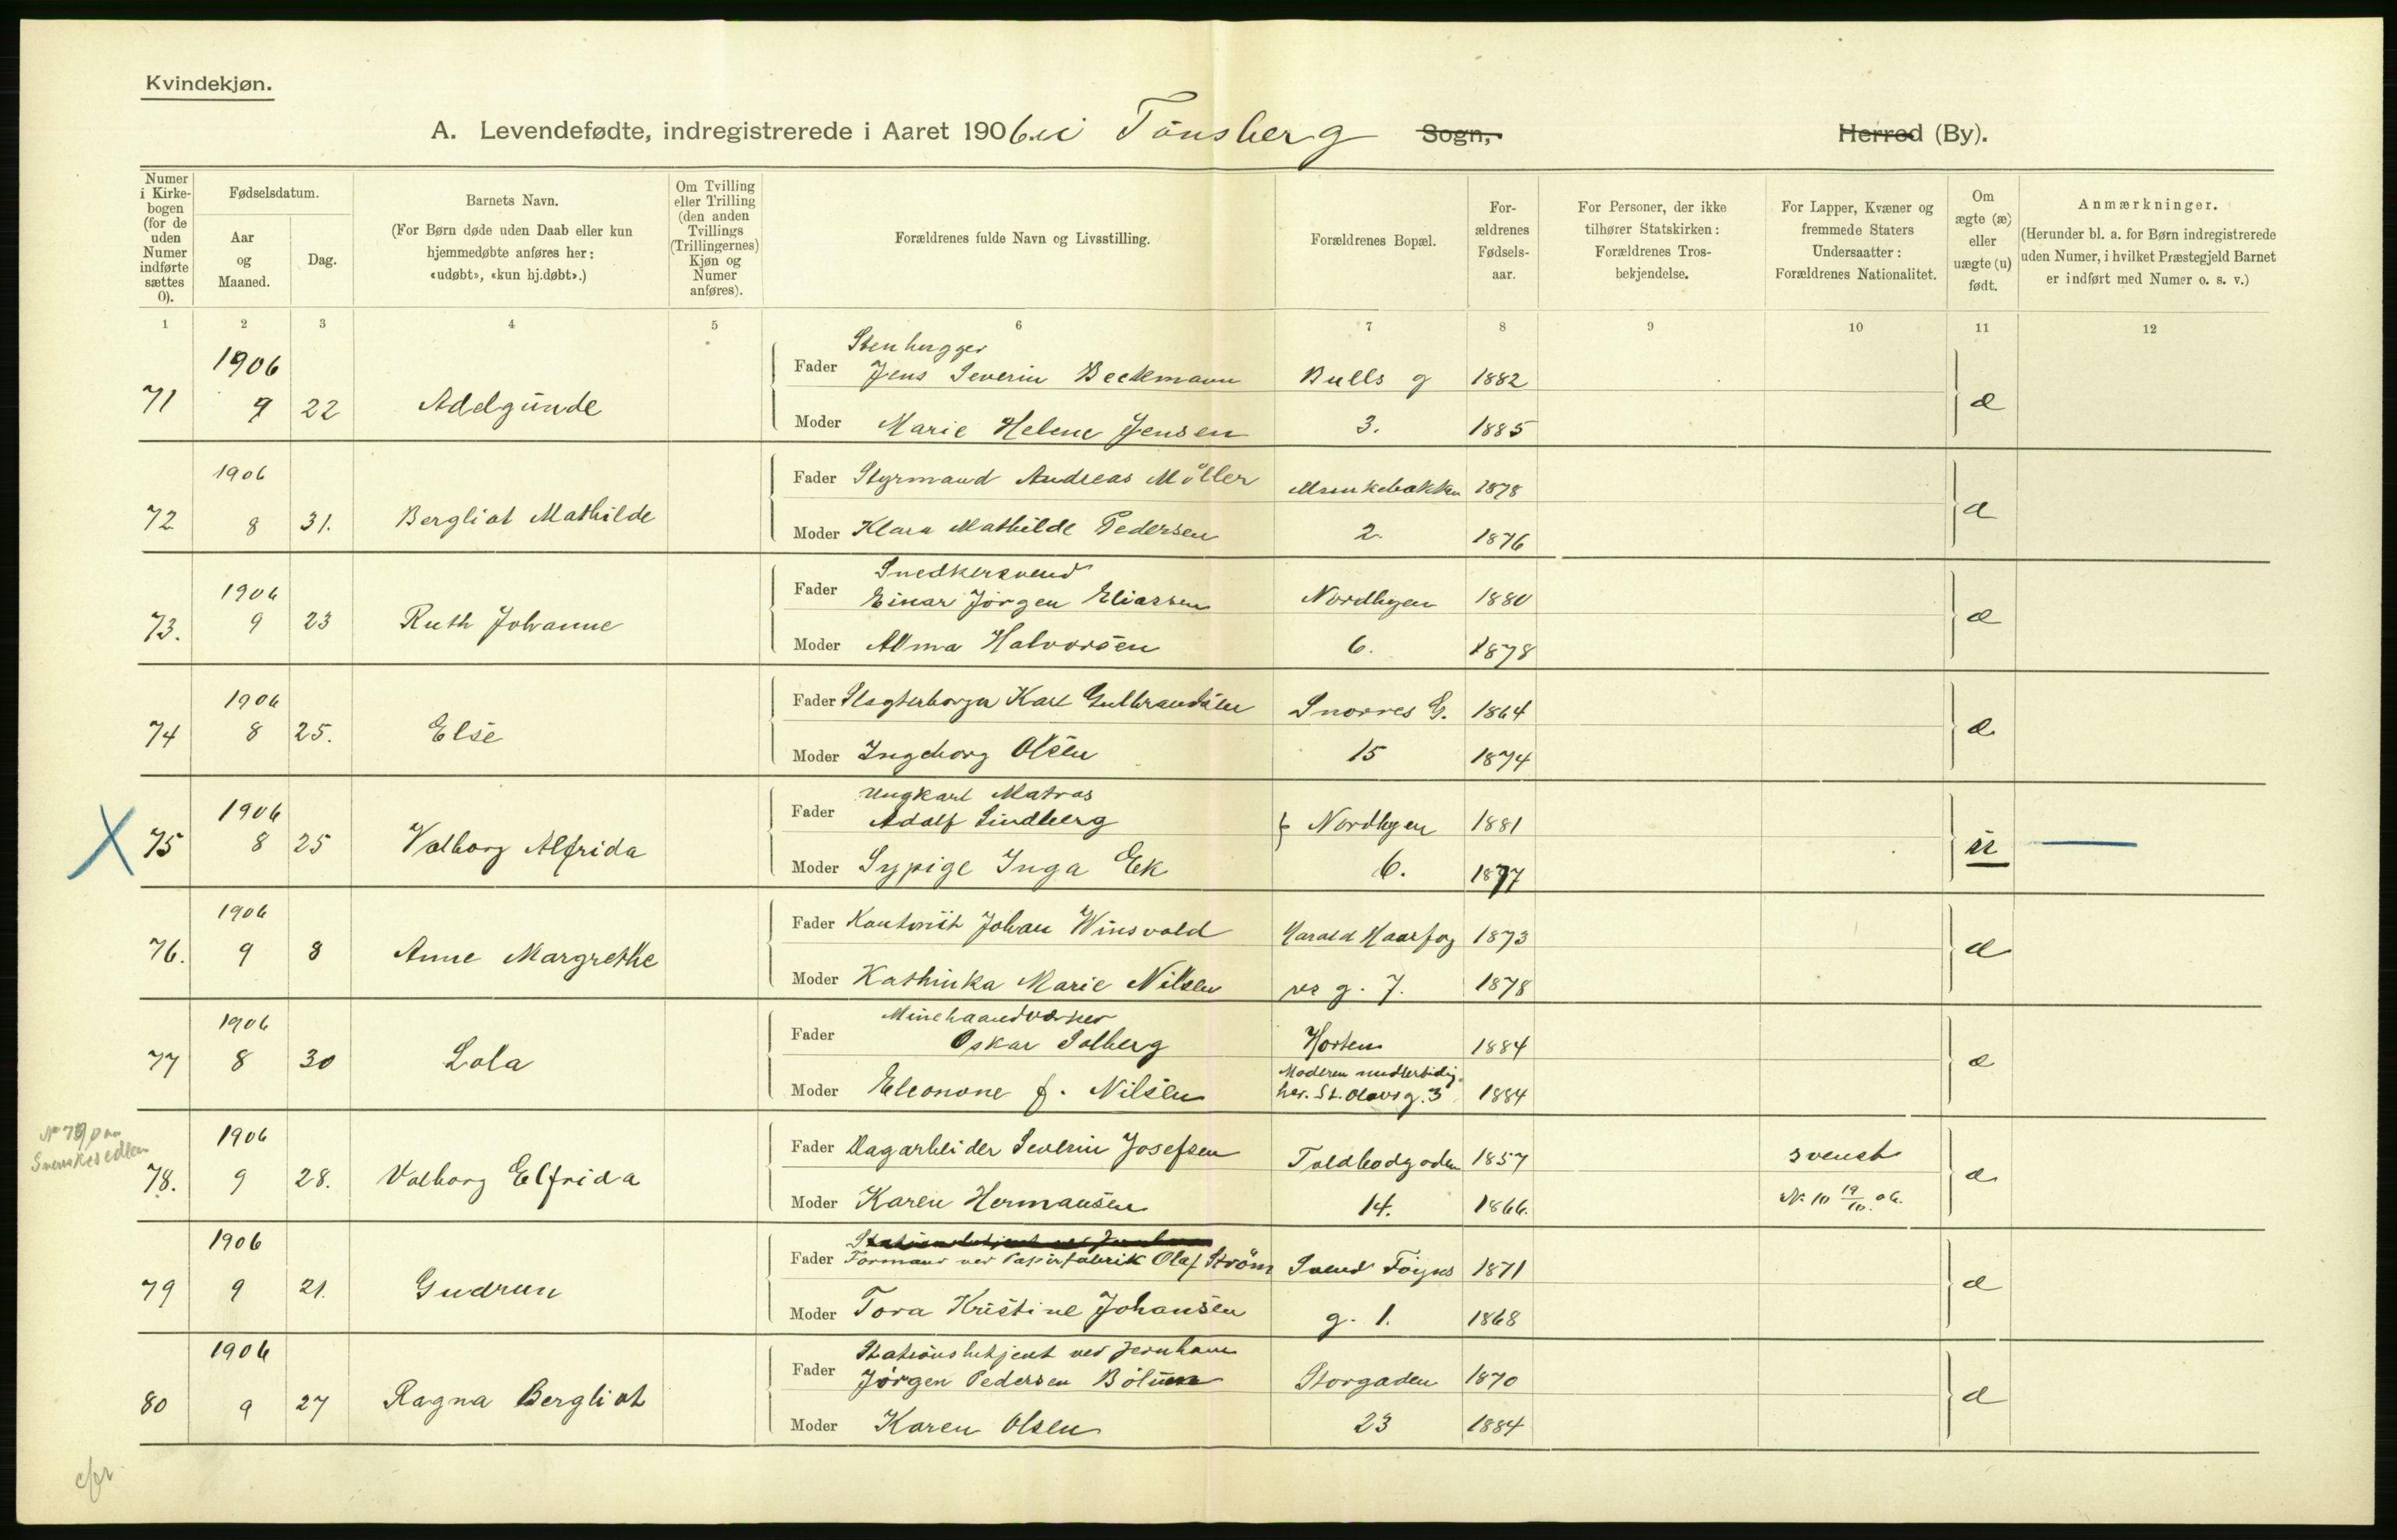 Kvindekjøn.
A. Levendefødte, indregistrerede i Aaret 1906. i Tönsberg Sogn, Herred (By).
Numer i Kirke- bogen (for de uden Numer indførte sættes 0).
Fødselsdatum.
Aar og Maaned.
Dag.
Barnets Navn.
(For Børn døde uden Daab eller kun hjemmedøbte anføres her: «udøbt», «kun hj.døbt».)
Om Tvilling eller Trilling (den anden Tvillings (Trillingernes) Kjøn og Numer anføres).
Forældrenes fulde Navn og Livsstilling.
Forældrenes Bopæl.
For- ældrenes Fødsels- aar.
For Personer, der ikke tilhører Statskirken: Forældrenes Tros- bekjendelse.
For Lapper, Kvæner og fremmede Staters Undersaatter: Forældrenes Nationalitet.
Om ægte (æ) eller uægte (u) født.
Anmærkninger.
(Herunder bl. a. for Børn indregistrerede uden Numer, i hvilket Præstegjeld Barnet er indført med Numer o. s. v.)
1 2 3 4 5 6 7 8 9 10 11 12
Stenhugger
1906 Fader Jens Severin Beckmann Bulls g 1882
71 9 22 Adelgunde æ
Moder Marie Helene Jensen 3. 1885
1906 Fader Styrmand Andreas Möller Munkebakken 1878
72 8 31. Bergliot Mathilde æ
Moder Klara Mathilde Pedersen 2. 1876
Snedkersvend
1906 Fader Einar Jörgen Eliassen Nordbyen 1880
73. 9 23 Ruth Johanne æ
Moder Alma Halvorsen 6. 1878
1906 Fader Slagterborger Karl Gulbrandsen Snorres G. 1864
74 8 25. Else æ
Moder Ingeborg Olsen 15 1874
Ungkarl Matros
1906 Fader Adolf Lindberg Nordbyen 1881
75 8 25 Valborg Alfrida u
Moder Sypige Inga Ek 6. 1877
1906 Fader Kontorist Johan Winsvold Harald Haarfag 1873
76. 9 8 Anne Margrethe æ
Moder Kathinka Marie Nilsen res g. 7. 1878
Minehaandverker
1906 Fader Oskar Solberg Horten 1884
77 8 30 Lola æ
Moderen midlertidig
Moder Eleonore f. Nilsen her. St. Olavs g. 3 1884
No 79 paa
Svenskesedlen
1906 Fader Dagarbeider Severin Josefsen Toldbodgaden 1857 svensk
78. 9 28. Valborg Elfrida æ
Moder Karen Hermansen 14. 1866. No 10 19/10. 06.
1906 Fader Formand ved Papirfabrik Olaf Ström Svend Foyns 1871
79 9 21. Gudrun æ
Moder Tora Kristine Johansen g. 1. 1868
Stationsbetjent ved Jernbane
1906 Fader Jörgen Pedersen Storgaden 1870
80 9 27 Ragna Bergliot æ
Moder Karen Olsen 23 1884